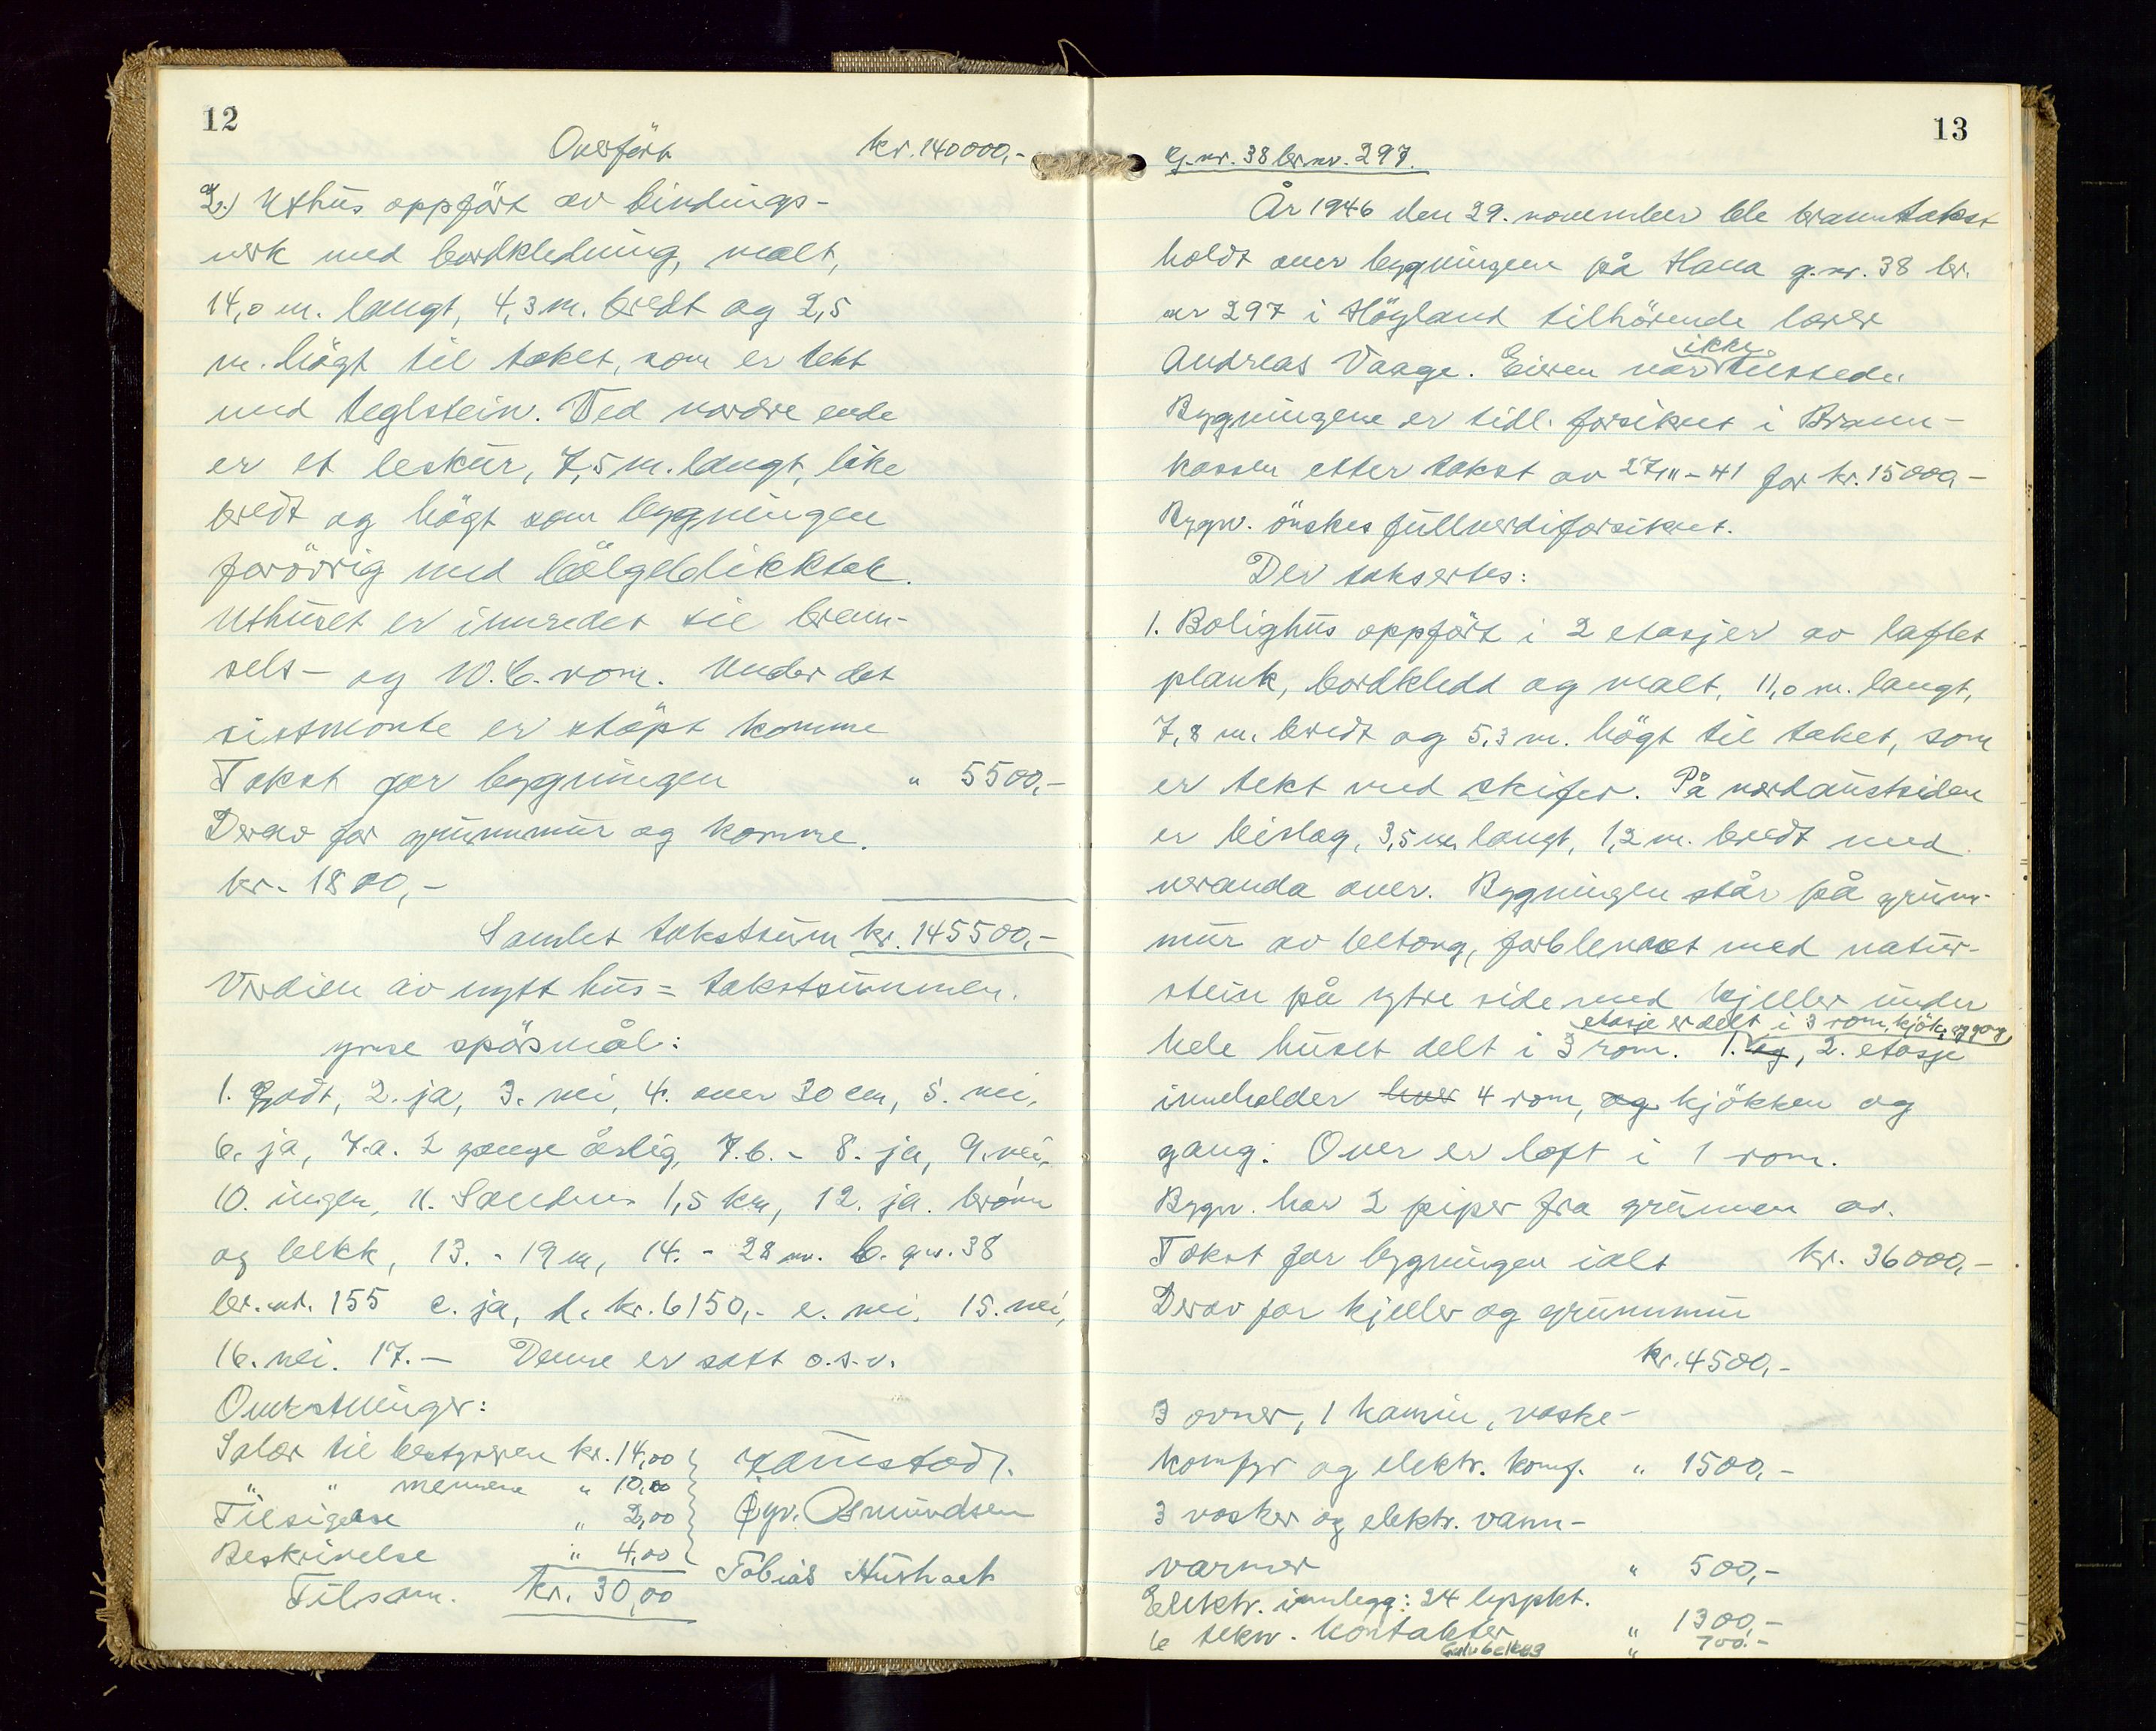 12
Overfört kr. 140000,-
2.) Uthus oppfört av bindings-
verk med bordkledning, malt,
14,0 m. langt, 4,3 m. bredt og 2,5
m. högt til taket, som er tekt
med teglstein. Ved nordre ende
er et leskur, 7,5 m. langt, like
bredt og högt som bygningen
forövrig med bölgeblikktak.
Uthuset er innredet til bren-
sels- og W.C. rom. Under det
sistnevnte er stöpt komme
Takst for bygningen " 5500,-
Derav for grunnmur og komme.
kr. 1800,-
Samlet takstsum kr. 145500,-
Verdien av nytt hus = takstsummen.
ymse spörsmål:
1. Godt, 2. ja, 3. nei, 4. over 30 cm, 5. nei,
6. ja, 7.a. 2 gange årlig, 7.b. - 8. ja, 9. nei,
10. ingen, 11. Sandnes 1,5 km, 12. ja. brönn
og bekk, 13. - 19 m, 14. - 28 m. b. g.nr. 38
br.nr. 155 c. ja, d. kr. 6150,- e. nei, 15. nei,
16. nei. 17. - Denne er satt o.s.v.
Omkostninger:
Salær til bestyreren kr. 14,00
" " mennene " 10,00
Tilsigelse " 2,00 Gyv. Asmundsen
Beskrivelse " 4,00 Tobias
Tilsam. kr. 30,00
13
G.nr. 38 br.nr. 297.
År 1946 den 29. november ble branntakst
holdt over bygningene på Hana g.nr. 38 br.
nr 297 i Höyland tilhörende lærer
ikke
Andreas Vaage. Eieren var tilstede.
Bygningene er tidl. forsikret i Brann-
kassen etter takst av 27/11-41 for kr. 15000,-
Bygn. önskes fullverdiforsikret.
Der takseres:
1. Bolighus oppfört i 2 etasjer av laftet
plank, bordkledd og malt, 11,0 m. langt,
7,8 m. bredt og 5,3 m. högt til taket, som
er tekt med skifer. På nordaustsiden
er bislag, 3,5 m. langt, 1,2 m. bredt med
veranda over. Bygningen står på grunn-
mur av betong, forblendet med natur-
stein på ytre side med kjeller under
etasje er delt i 3 rom, kjök. og gang,
hele huset delt i 3 rom. 1. og, 2. etasje
inneholder hver 4 rom, og kjökken og
gang. Over er loft i 1 rom.
Bygn. har 2 piper fra grunnen av.
Takst for bygningen ialt kr. 36000,-
Derav for kjeller og grunnmur
kr. 4500,-
3 ovner, 1 kamin, vaske-
komfyr og elektr. komf. " 1500,-
3 vasker og elektr. vann-
varmer " 500,-
Elektr. innlegg: 24 lyspkt.
6 tekn. kontakter " 1300,-
Gulvbelegg " 700.-